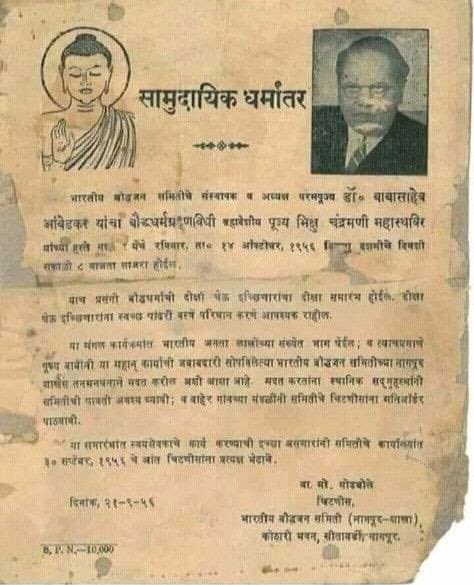 सामुदायिक धर्मांतर
भारतीय बौद्धजन समितीचे संस्थापक व अध्यक्ष परमपूज्य डॉ० बाबासाहेब
आंबेडकर यांचा बौद्धधर्मग्रहणविधी ब्रह्मदेशीय पूज्य भिक्षु चंद्रमणी महास्थविर
यांच्या हस्ते येथे रविवार, ता० १४ ऑक्टोबर, १९५६ दशमीचे दिवशी
सकाळी ८ वाजता साजरा होईल.
याच प्रसंगी बौद्धधर्माची दीक्षा घेऊ इच्छिणारांचा दीक्षा समारंभ होईल. दीक्षा
घेऊ इच्छिणारांना स्वच्छ पांढरी वस्त्रे परिधान करणे आवश्यक राहील.
या मंगल कार्यक्रमांत भारतीय जनता लाखोंच्या संख्येत भाग घेईल; व त्याचप्रमाणे
पूज्य बाबांनी या महान् कार्याची जबाबदारी सोपविलेल्या भारतीय बौद्धजन समितीच्या नागपूर
शाखेस तनमनधनाने मदत करील अशी आशा आहे. मदत करतांना स्थानिक सद्गृहस्थांनी
समितीची पावती अवश्य घ्यावी; व बाहेर गांवच्या मंडळींनी समितीचे चिटणीसांना मनिऑर्डर
पाठवावी.
या समारंभांत स्वयंसेवकाचे कार्य करण्याची इच्छा असणारांनी समितीचे कार्यालयांत
३० सप्टेंबर, १९५६ चे आंत चिटणीसांना प्रत्यक्ष भेटावे.
वा. मो. गोडबोले
दिनांक, २१-९-५६
चिटणीस,
भारतीय बौद्धजन समिती (नागपूर-शाखा)
कोठारी भवन, सीताबर्डी, नागपूर.
B. P. N.—10,000